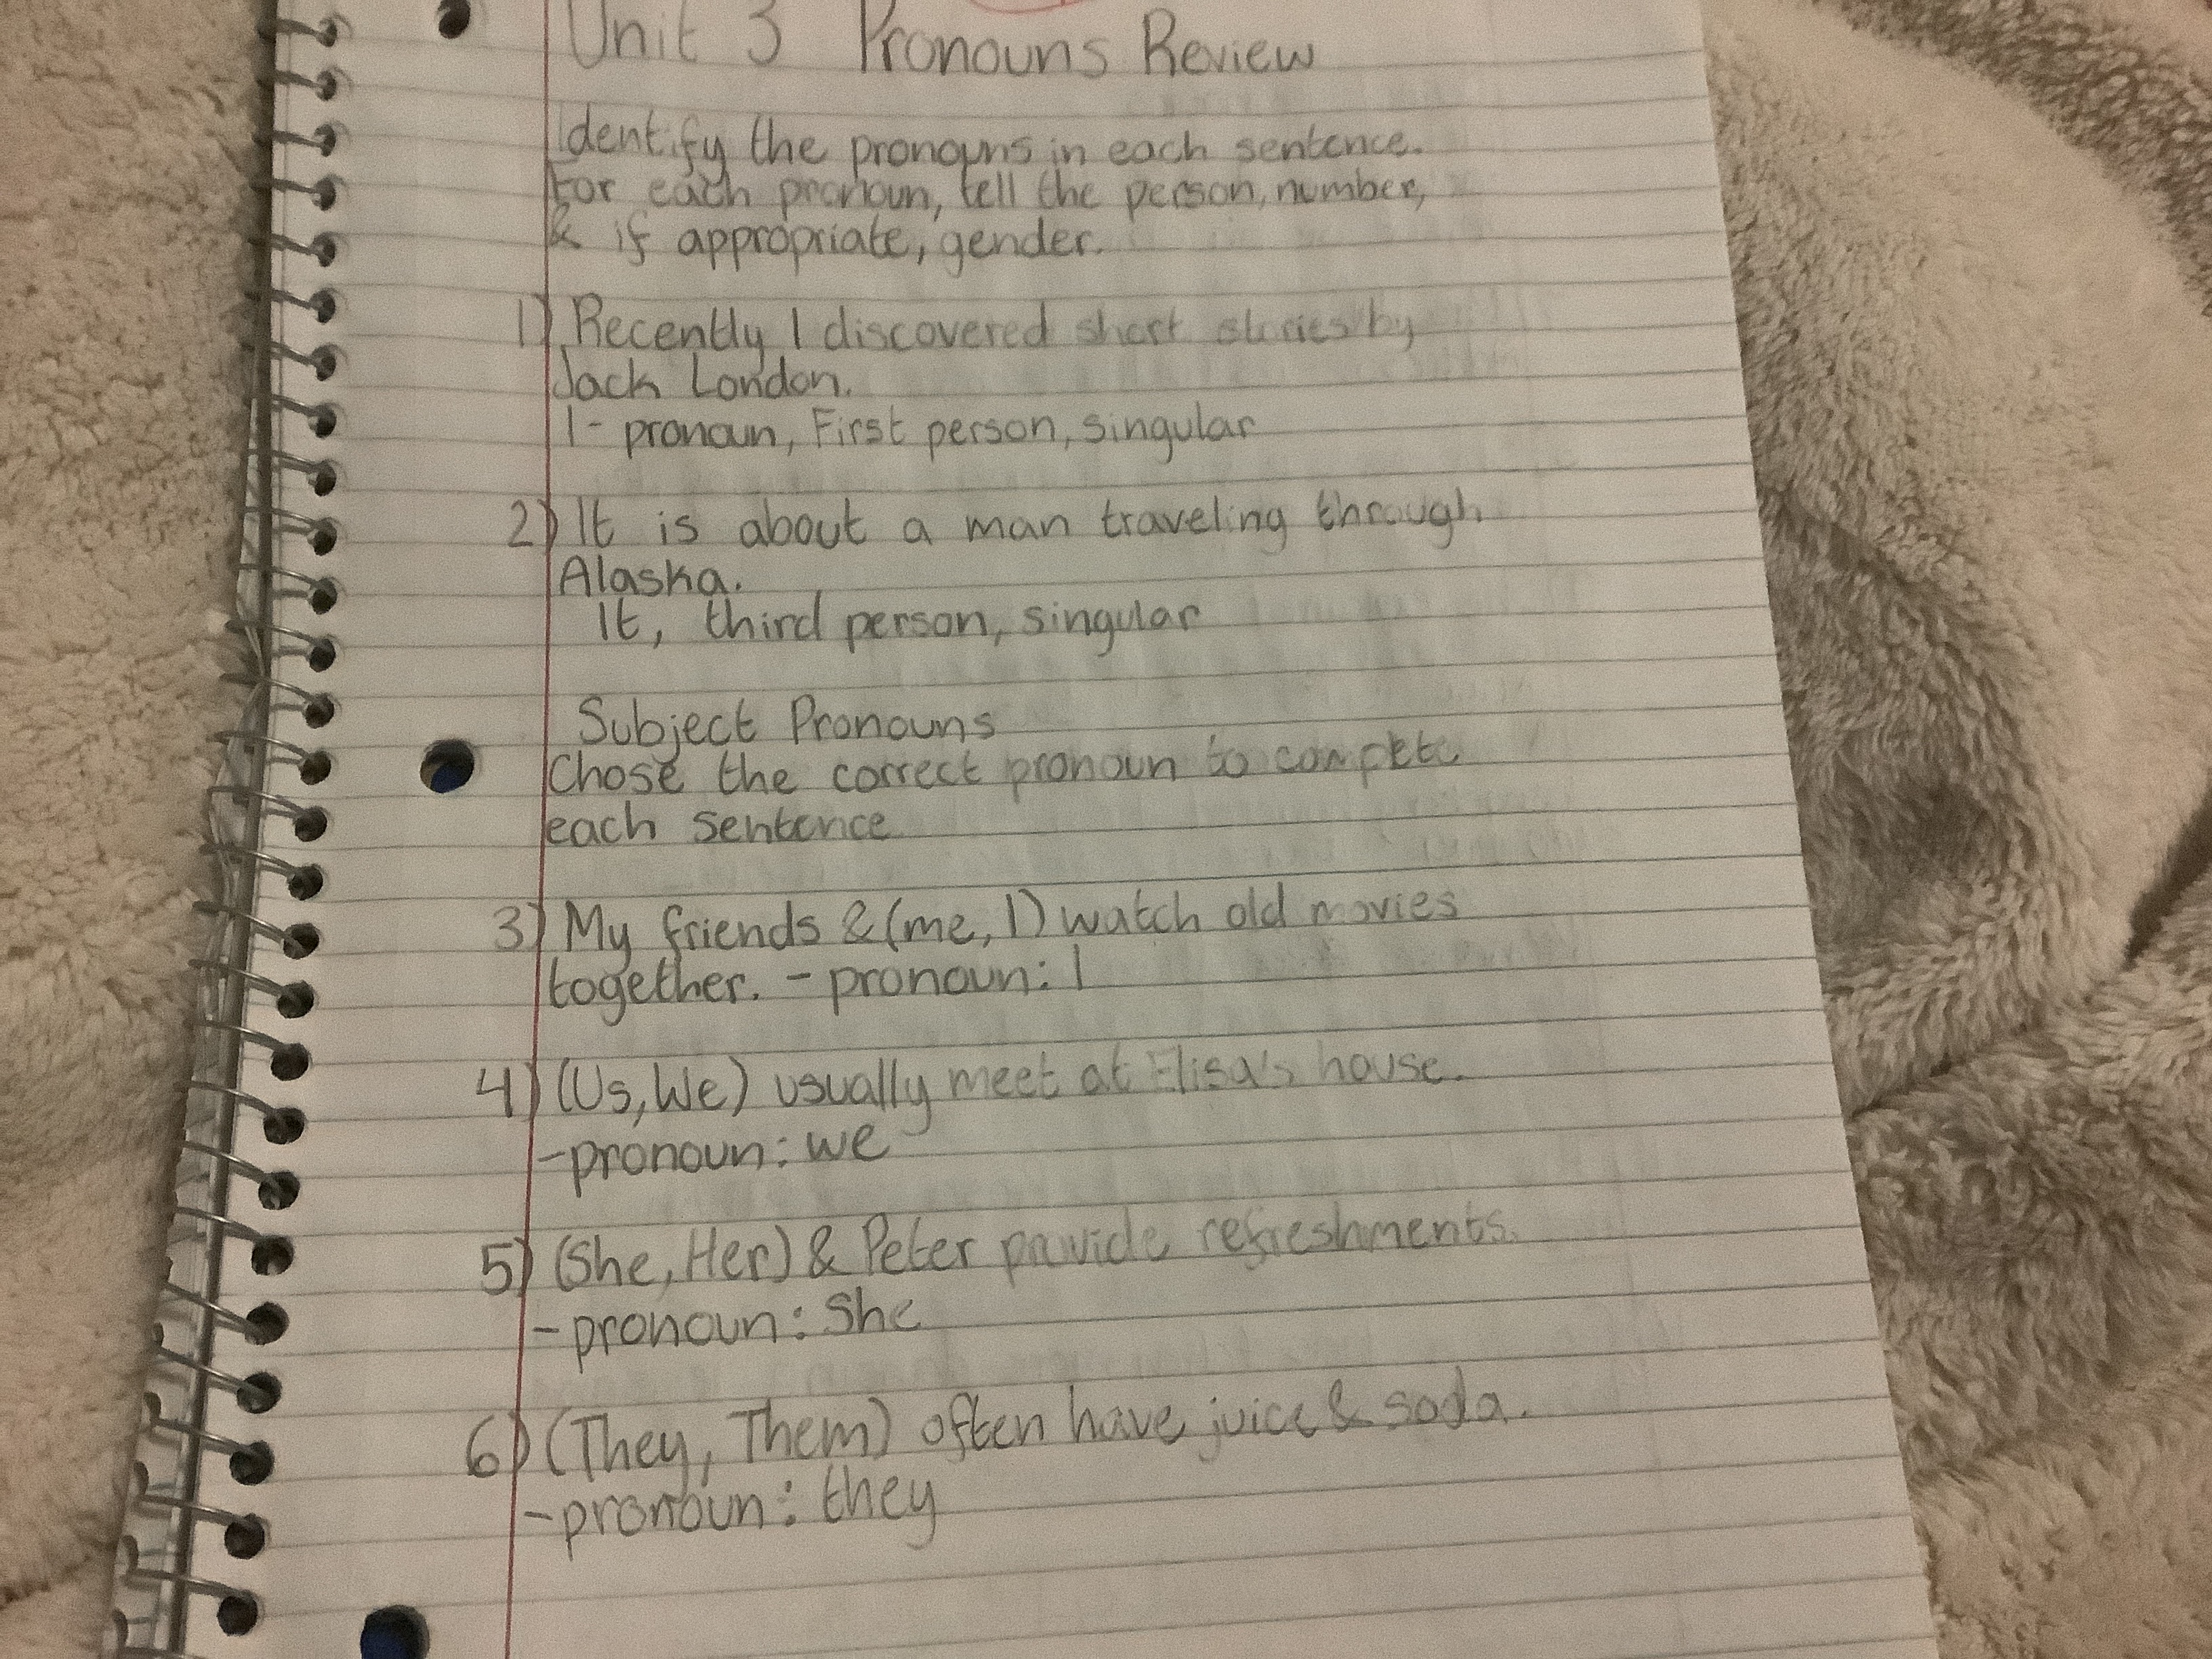 Unit 3 Pronouns Review
Identify the pronouns in each sentence.
For each pronoun, tell the person, number,
& if appropriate, gender.
1) Recently I discovered short stories by
Jack London.
I - pronoun, First person, singular
2) It is about a man traveling through
Alaska.
It, third person, singular
Subject Pronouns
Chose the correct pronoun to compete
each sentence
3) My friends & (me, I) watch old movies
together. - pronoun: I
4) (Us, We) usually meet at Elisa's house.
- pronoun: we
5) (She, Her) & Peter provide refreshments.
- pronoun: She
6) (They, Them) often have juice & soda.
- pronoun: they